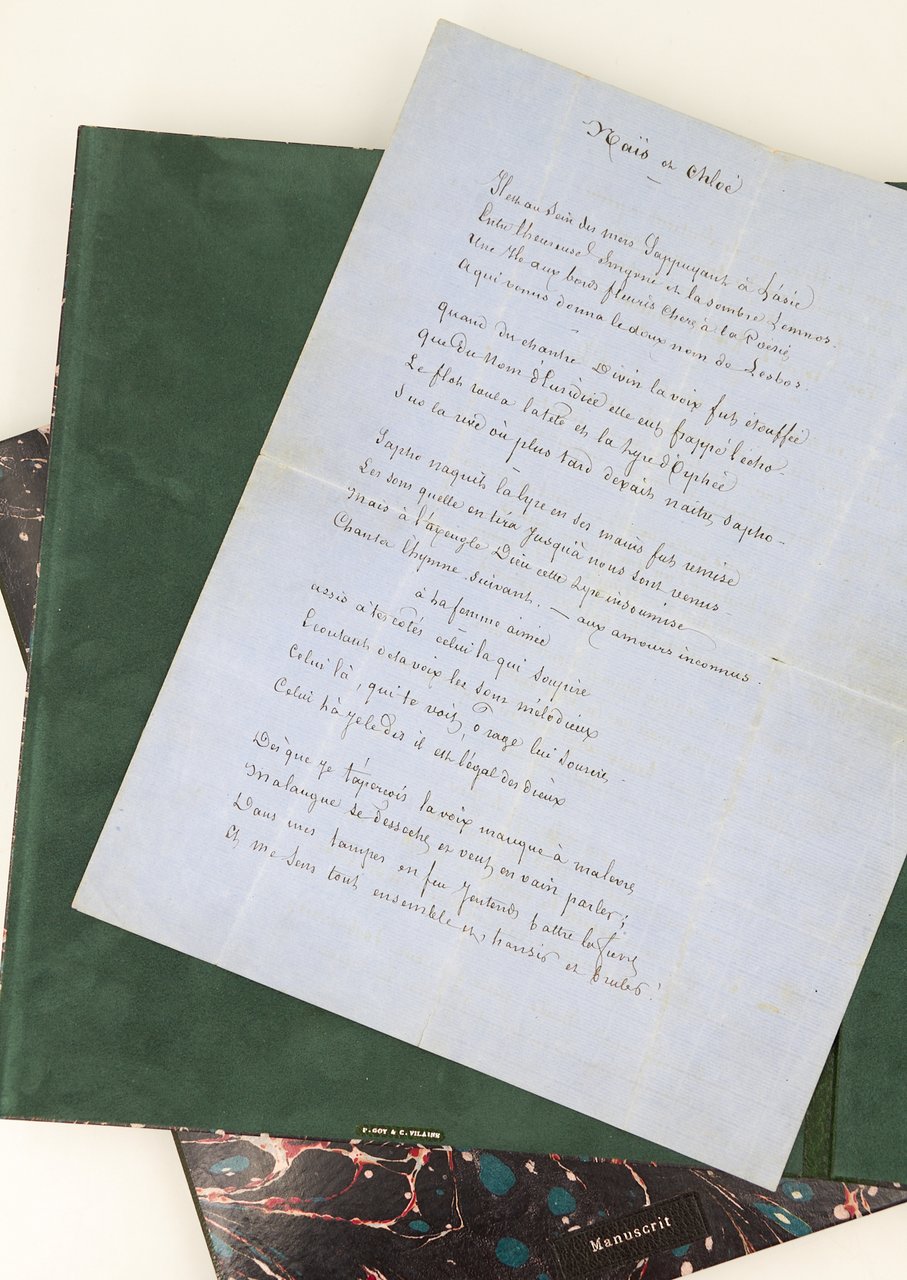 Naïs et Chloé
Il est au Sein des mers S'appuyant à L'asie
Entre l'heureuse Smyrne et la sombre Lemnos.
Une Ile aux bords fleuris chers à la Poésie
A qui venus donna le doux nom de Lesbos.
quand du chantre Divin la voix fut étouffée
que du Nom d'Euridice elle eut frappé l'écho
Le flot roula la tête et la lyre d'Orphée
Sur la rive où plus tard devait naître Sapho
Sapho naquit la lyre en ses mains fut remise
Les sons quelle en tira Jusqu'à nous sont venus
Mais à l'aveugle Dieu cette Lyre insoumise
Chanta l'hymne suivant. — aux amours inconnus.
à la femme aimée
assis à tes côtés celui la qui soupire
Ecoutant de ta voix les sons mélodieux
Celui là, qui te voit, O rage lui sourire
Celui là je le dis il est l'égal des dieux
Dès que je t'aperçois la voix manque à ma levre
Ma langue se dessèche et veut en vain parler;
Dans mes tempes en feu J'entends battre la fievre
Et me sens tout ensemble et transir et bruler!
P. GOY & C. VILAINE
Manuscrit